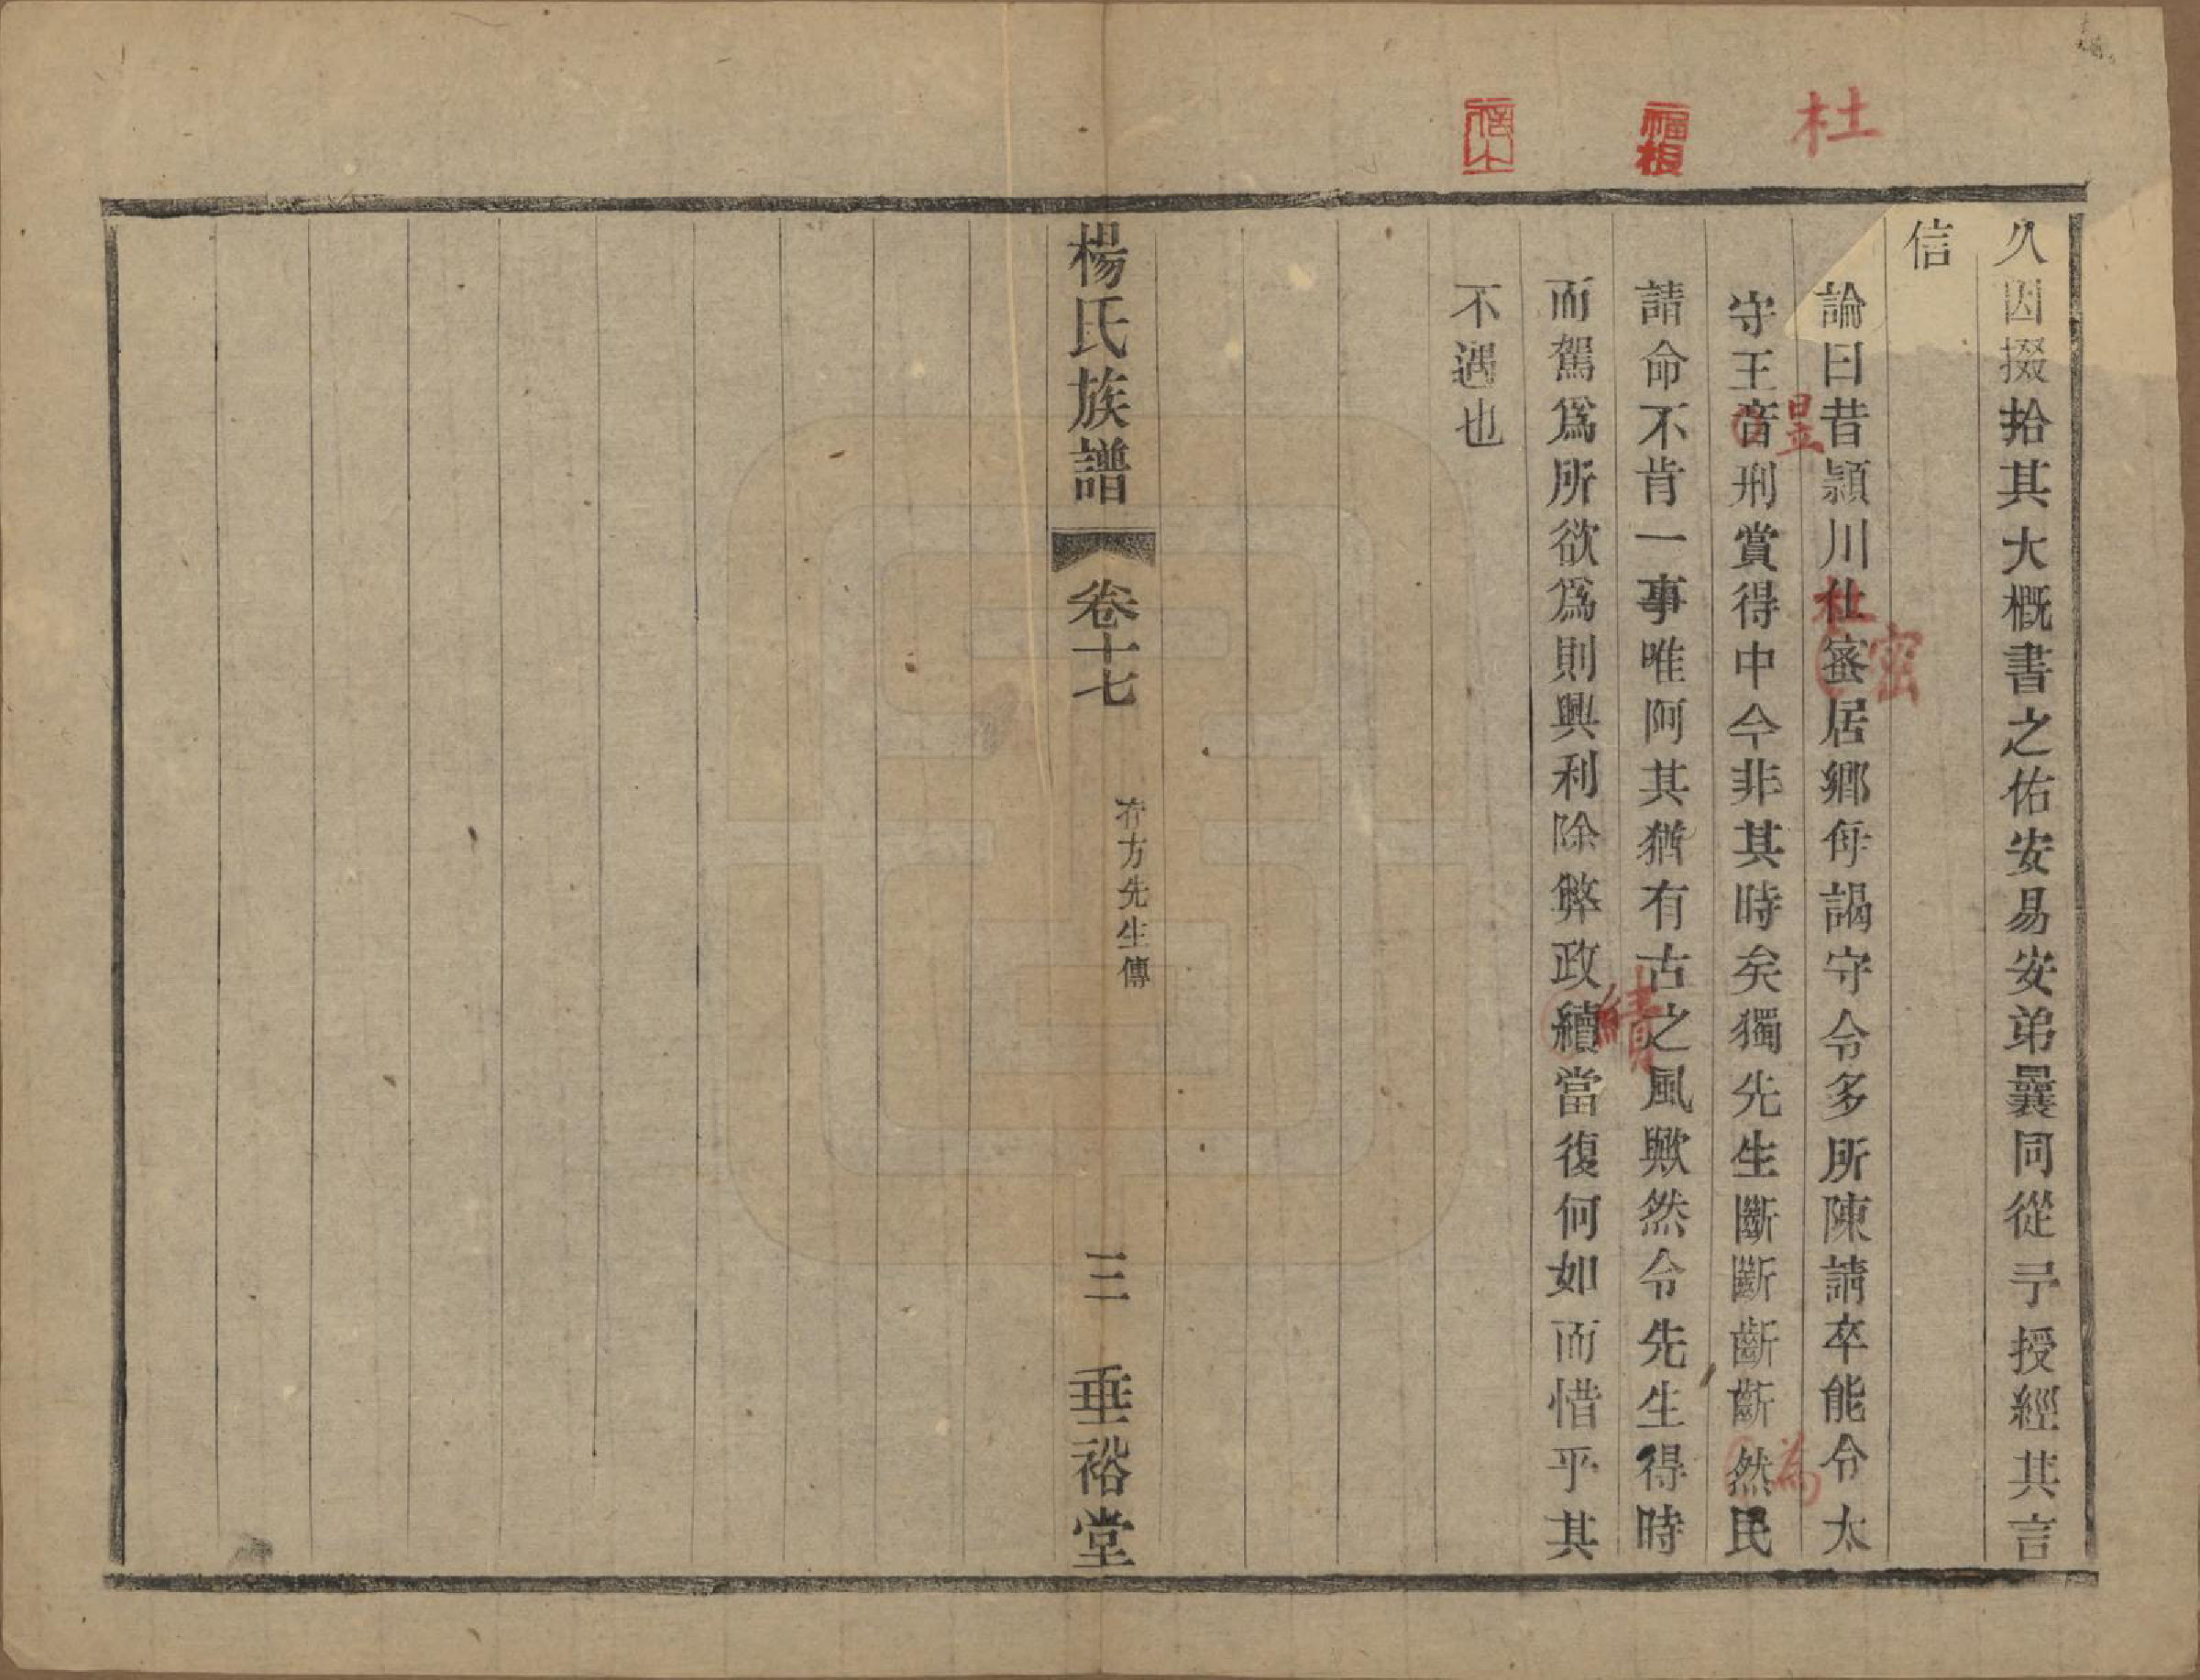 久因掇拾其大概書之佑安易安弟曩同從予授經其言
信
論曰昔潁川仕簺居鄉每謁守令多所陳請卒能令太
守王音刑賞得中今非其時矣獨先生斷斷齗齗然民
請命不肯一事唯阿其猶有古之風歟然令先生得時
而駕爲所欲爲則興利除弊政續當復何如而惜乎其
不遇也
楊氏族譜
卷十七
方先生傳
三
垂裕堂
杜
福根
昱
杜
密
績
為